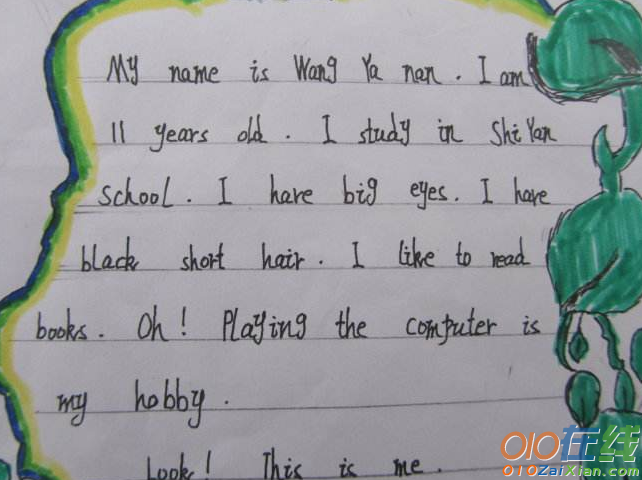 My name is Wang Ya nan. I am
11 years old. I study in Shi Yan
school. I have big eyes. I have
black short hair. I like to read
books. Oh! Playing the computer is
my hobby.
Look! This is me.
010在线
010ZaiXian.com